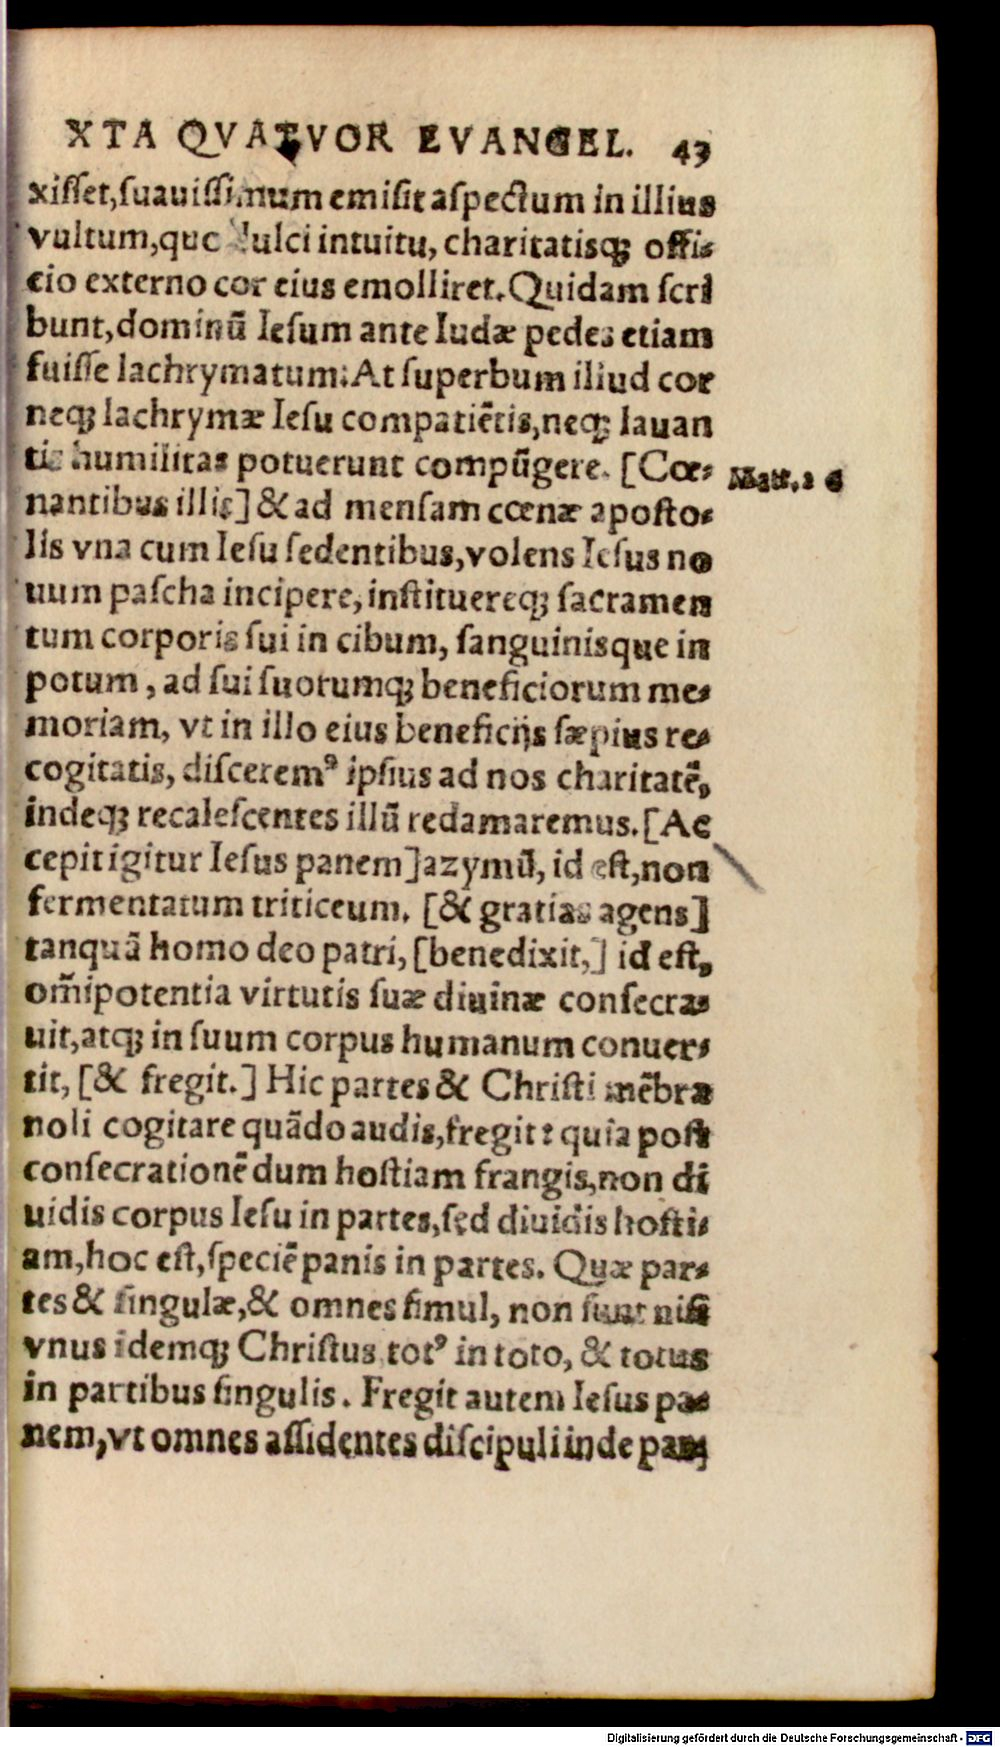 XTA QVATVOR EVANGEL. 43
xiſſet,ſuauiſſimum emiſit aſpectum in illius
vultum,quo dulci intuitu, charitatisq; offi-
cio externo cor eius emolliret. Quidam ſcri
bunt,dominũ Ieſum ante Iudæ pedes etiam
fuiſſe lachrymatum: At ſuperbum illud cor
neq; lachrymæ Ieſu compatiẽtis,neq; lauan
tis humilitas potuerunt compũgere. [Cœ-
Matt.26
nantibus illis] & ad menſam cœnæ apoſto-
lis vna cum Ieſu ſedentibus,volens Ieſus no
uum paſcha incipere, inſtituereq; ſacramen
tum corporis ſui in cibum, ſanguinisque in
potum, ad ſui ſuorumq; beneficiorum me-
moriam, vt in illo eius beneficijs ſæpius re-
cogitatis, diſceremꝰ ipſius ad nos charitatẽ,
indeq; recaleſcentes illũ redamaremus. [Ac
cepit igitur Ieſus panem] azymũ, id eſt,non
fermentatum triticeum. [& gratias agens]
tanquã homo deo patri, [benedixit,] id eſt,
om̃ipotentia virtutis ſuæ diuinæ conſecra-
uit,atq; in ſuum corpus humanum conuer-
tit, [& fregit.] Hic partes & Chriſti mẽbra
noli cogitare quãdo audis,fregit: quia poſt
conſecrationẽ dum hoſtiam frangis,non di
uidis corpus Ieſu in partes,ſed diuidis hoſti-
am,hoc eſt,ſpeciẽ panis in partes. Quæ par-
tes & ſingulæ,& omnes ſimul, non ſunt niſi
vnus idemq; Chriſtus totꝰ in toto, & totus
in partibus ſingulis. Fregit autem Ieſus pa-
nem,vt omnes aſſidentes diſcipuli inde pane
Digitalisierung gefördert durch die Deutsche Forschungsgemeinschaft - DFG